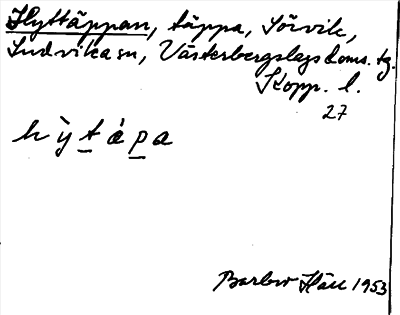 Hyttäppan, täppa, Sörvik,
Ludvika sn, Västerbergslags doms. tg.
Kopp. l.
27
hỳtápa
Barbro Häll 1953